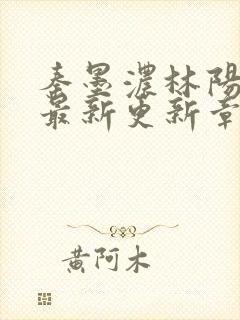 秦墨濃林陽
最新更新章
黄阿木